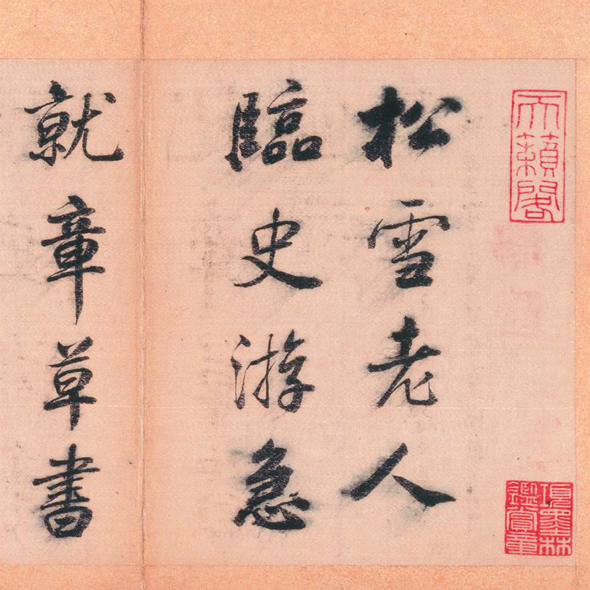 松雪老人
臨史游急
就章草書
天籟閣
項墨林
鑑賞章